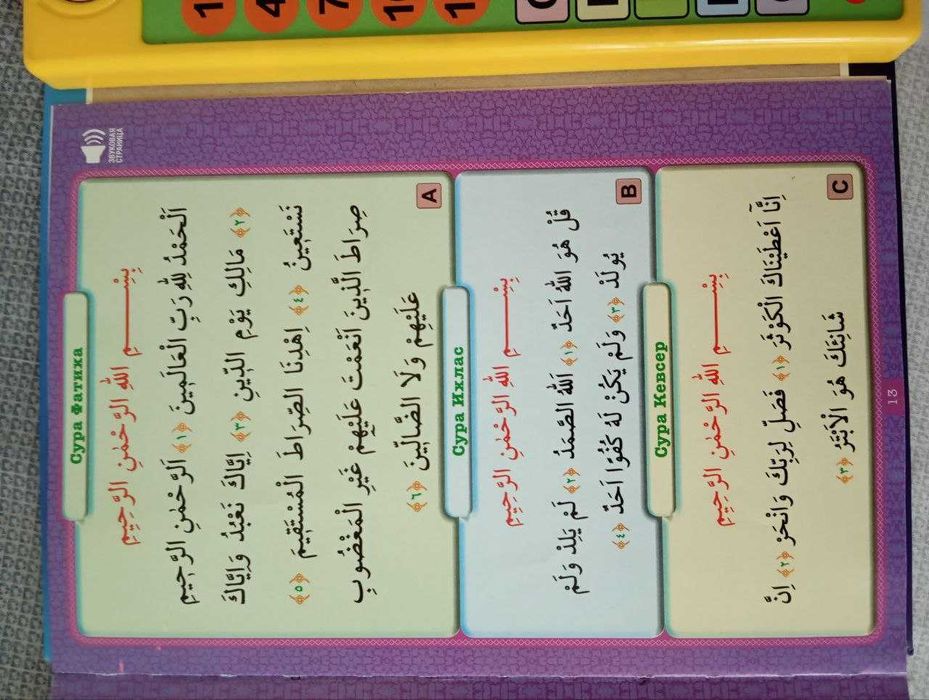 ЗВУКОВАЯ
СТРАНИЦА
Сура Фатиха
بِسْمِ اللهِ الرَّحْمٰنِ الرَّحِيمِ
اَلْحَمْدُ لِلّٰهِ رَبِّ الْعَالَمِينَ ﴿١﴾ اَلرَّحْمٰنِ الرَّحِيمِ
﴿٢﴾ مَالِكِ يَوْمِ الدِّينِ ﴿٣﴾ اِيَّاكَ نَعْبُدُ وَاِيَّاكَ
نَسْتَعِينُ ﴿٤﴾ اِهْدِنَا الصِّرَاطَ الْمُسْتَقِيمَ ﴿٥﴾
صِرَاطَ الَّذِينَ اَنْعَمْتَ عَلَيْهِمْ غَيْرِ الْمَغْضُوبِ
عَلَيْهِمْ وَلَا الضَّالِّينَ ﴿٦﴾
A
Сура Ихлас
بِسْمِ اللهِ الرَّحْمٰنِ الرَّحِيمِ
قُلْ هُوَ اللهُ اَحَدٌ ﴿١﴾ اَللهُ الصَّمَدُ ﴿٢﴾ لَمْ يَلِدْ وَلَمْ
يُولَدْ ﴿٣﴾ وَلَمْ يَكُنْ لَهُ كُفُوًا اَحَدٌ ﴿٤﴾
B
Сура Кевсер
بِسْمِ اللهِ الرَّحْمٰنِ الرَّحِيمِ
اِنَّٓا اَعْطَيْنَاكَ الْكَوْثَرَ ﴿١﴾ فَصَلِّ لِرَبِّكَ وَانْحَرْ ﴿٢﴾ اِنَّ
شَانِئَكَ هُوَ الْاَبْتَرُ ﴿٣﴾
C
13